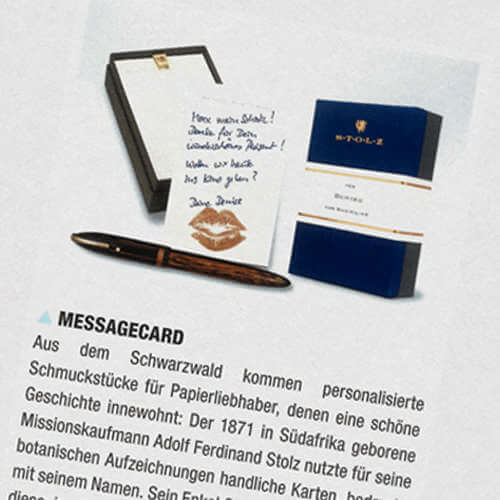 Hexe mein Schatz!
Danke für Dein
wunderschönes Präsent!
Wollen wir heute
ins Kino gehen?
Deine Denise
S·T·O·L·Z
MESSAGECARD
Aus dem Schwarzwald kommen personalisierte
Schmuckstücke für Papierliebhaber, denen eine schöne
Geschichte innewohnt: Der 1871 in Südafrika geborene
Missionskaufmann Adolf Ferdinand Stolz nutzte für seine
botanischen Aufzeichnungen handliche Karten,
mit seinem Namen. Sein Enkel